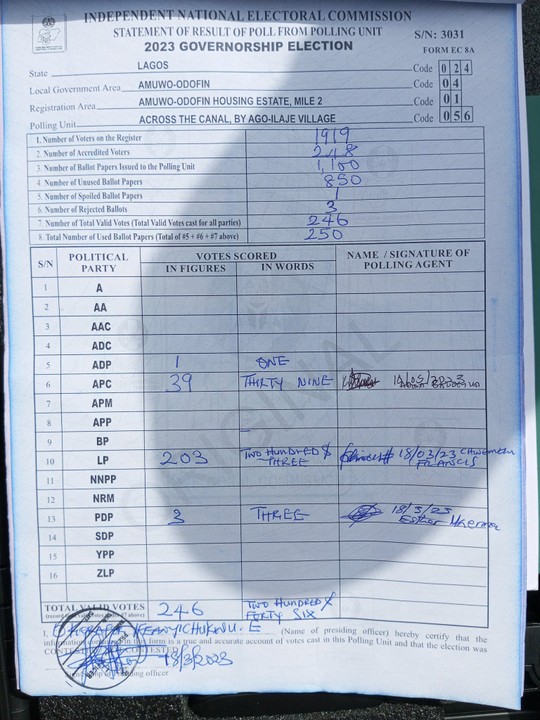 INDEPENDENT NATIONAL ELECTORAL COMMISSION
STATEMENT OF RESULT OF POLL FROM POLLING UNIT
S/N: 3031
2023 GOVERNORSHIP ELECTION
FORM EC 8A
State LAGOS Code 0 2 4
Local Government Area AMUWO-ODOFIN Code 0 4
Registration Area AMUWO-ODOFIN HOUSING ESTATE, MILE 2 Code 0 1
Polling Unit ACROSS THE CANAL, BY AGO-ILAJE VILLAGE Code 0 5 6
1. Number of Voters on the Register 1919
2. Number of Accredited Voters 248
3. Number of Ballot Papers Issued to the Polling Unit 1,100
4. Number of Unused Ballot Papers 850
5. Number of Spoiled Ballot Papers 1
6. Number of Rejected Ballots 3
7. Number of Total Valid Votes (Total Valid Votes cast for all parties) 246
8. Total Number of Used Ballot Papers (Total of #5 + #6 + #7 above) 250
S/N POLITICAL PARTY VOTES SCORED NAME / SIGNATURE OF POLLING AGENT
IN FIGURES IN WORDS
1 A
2 AA
3 AAC
4 ADC
5 ADP 1 ONE
6 APC 39 THIRTY NINE
7 APM
8 APP
9 BP
10 LP 203 TWO HUNDRED & THREE 18/03/23 FRANCIS
11 NNPP
12 NRM
13 PDP 3 THREE 18/3/23 Esther
14 SDP
15 YPP
16 ZLP
TOTAL VALID VOTES 246 TWO HUNDRED & FORTY SIX
IFEANYICHUKWU. E (Name of presiding officer) hereby certify that the
information contained in this form is a true and accurate account of votes cast in this Polling Unit and that the election was
CONTESTED
18/3/2023